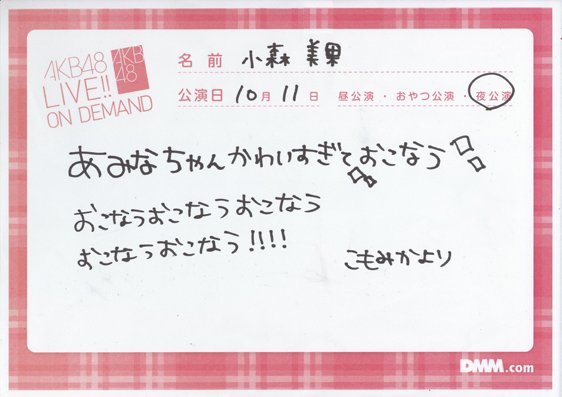 AKB48
LIVE!!
ON DEMAND
AKB
48
名前 小森 美果
公演日 10月 11日 昼公演・おやつ公演・夜公演
あみなちゃんかわいすぎておこなう
おこなうおこなうおこなう
おこなうおこなう!!!!
こもみかより
DMM.com